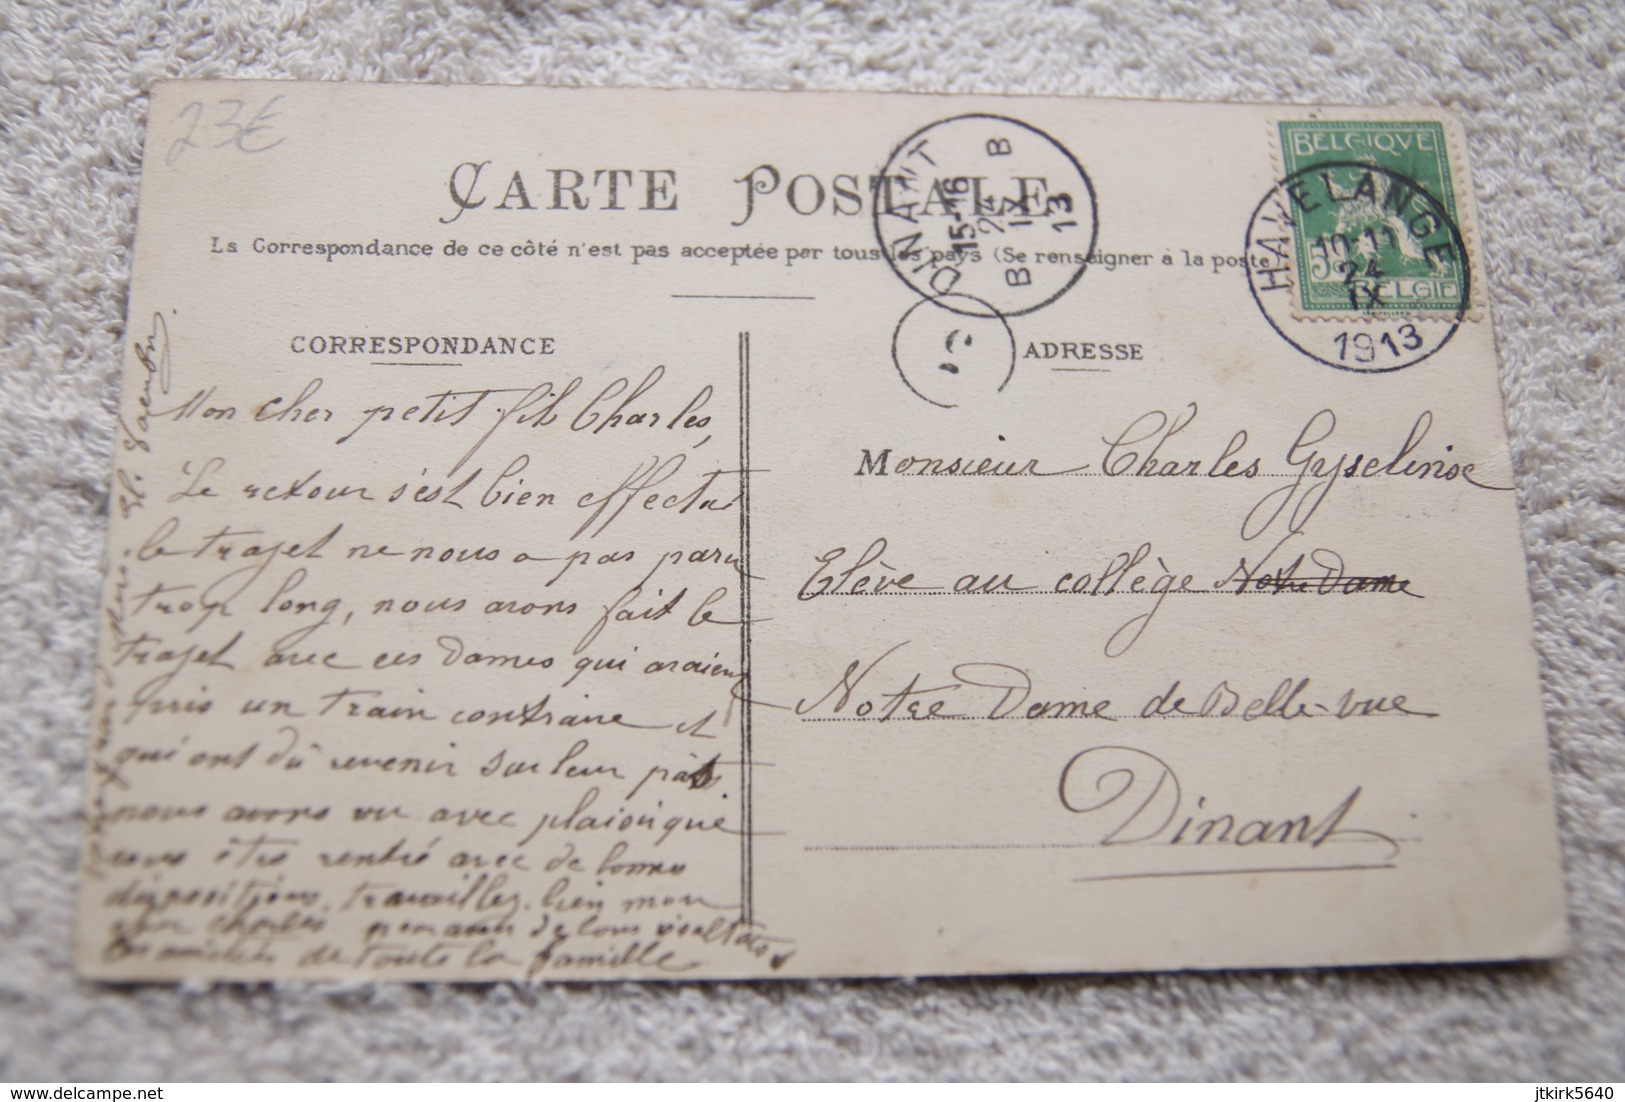 23€
CARTE POSTALE
La Correspondance de ce côté n'est pas acceptée par tous les pays (Se renseigner à la poste
BELGIQVE
5c
BELGIE
HAVELANGE
10-11
24
IX
1913
DINANT
15-16
24
IX
13
B B
CORRESPONDANCE
Mon cher petit fils Charles,
Le retour s'est bien effectué
le trajet ne nous a pas paru
trop long, nous avons fait le
trajet avec ces dames qui avaient
pris un train contraire et
qui ont dû revenir sur leur pas
nous avons vu avec plaisir que
vous êtes rentré avec de bonnes
dispositions, travaillez bien mon
cher Charles de bons résultats
de toute la famille
ADRESSE
Monsieur Charles Gyselinx
Elève au collège Notre Dame
Notre Dame de Belle-vue
Dinant
delcampe.net
jtkirk5640